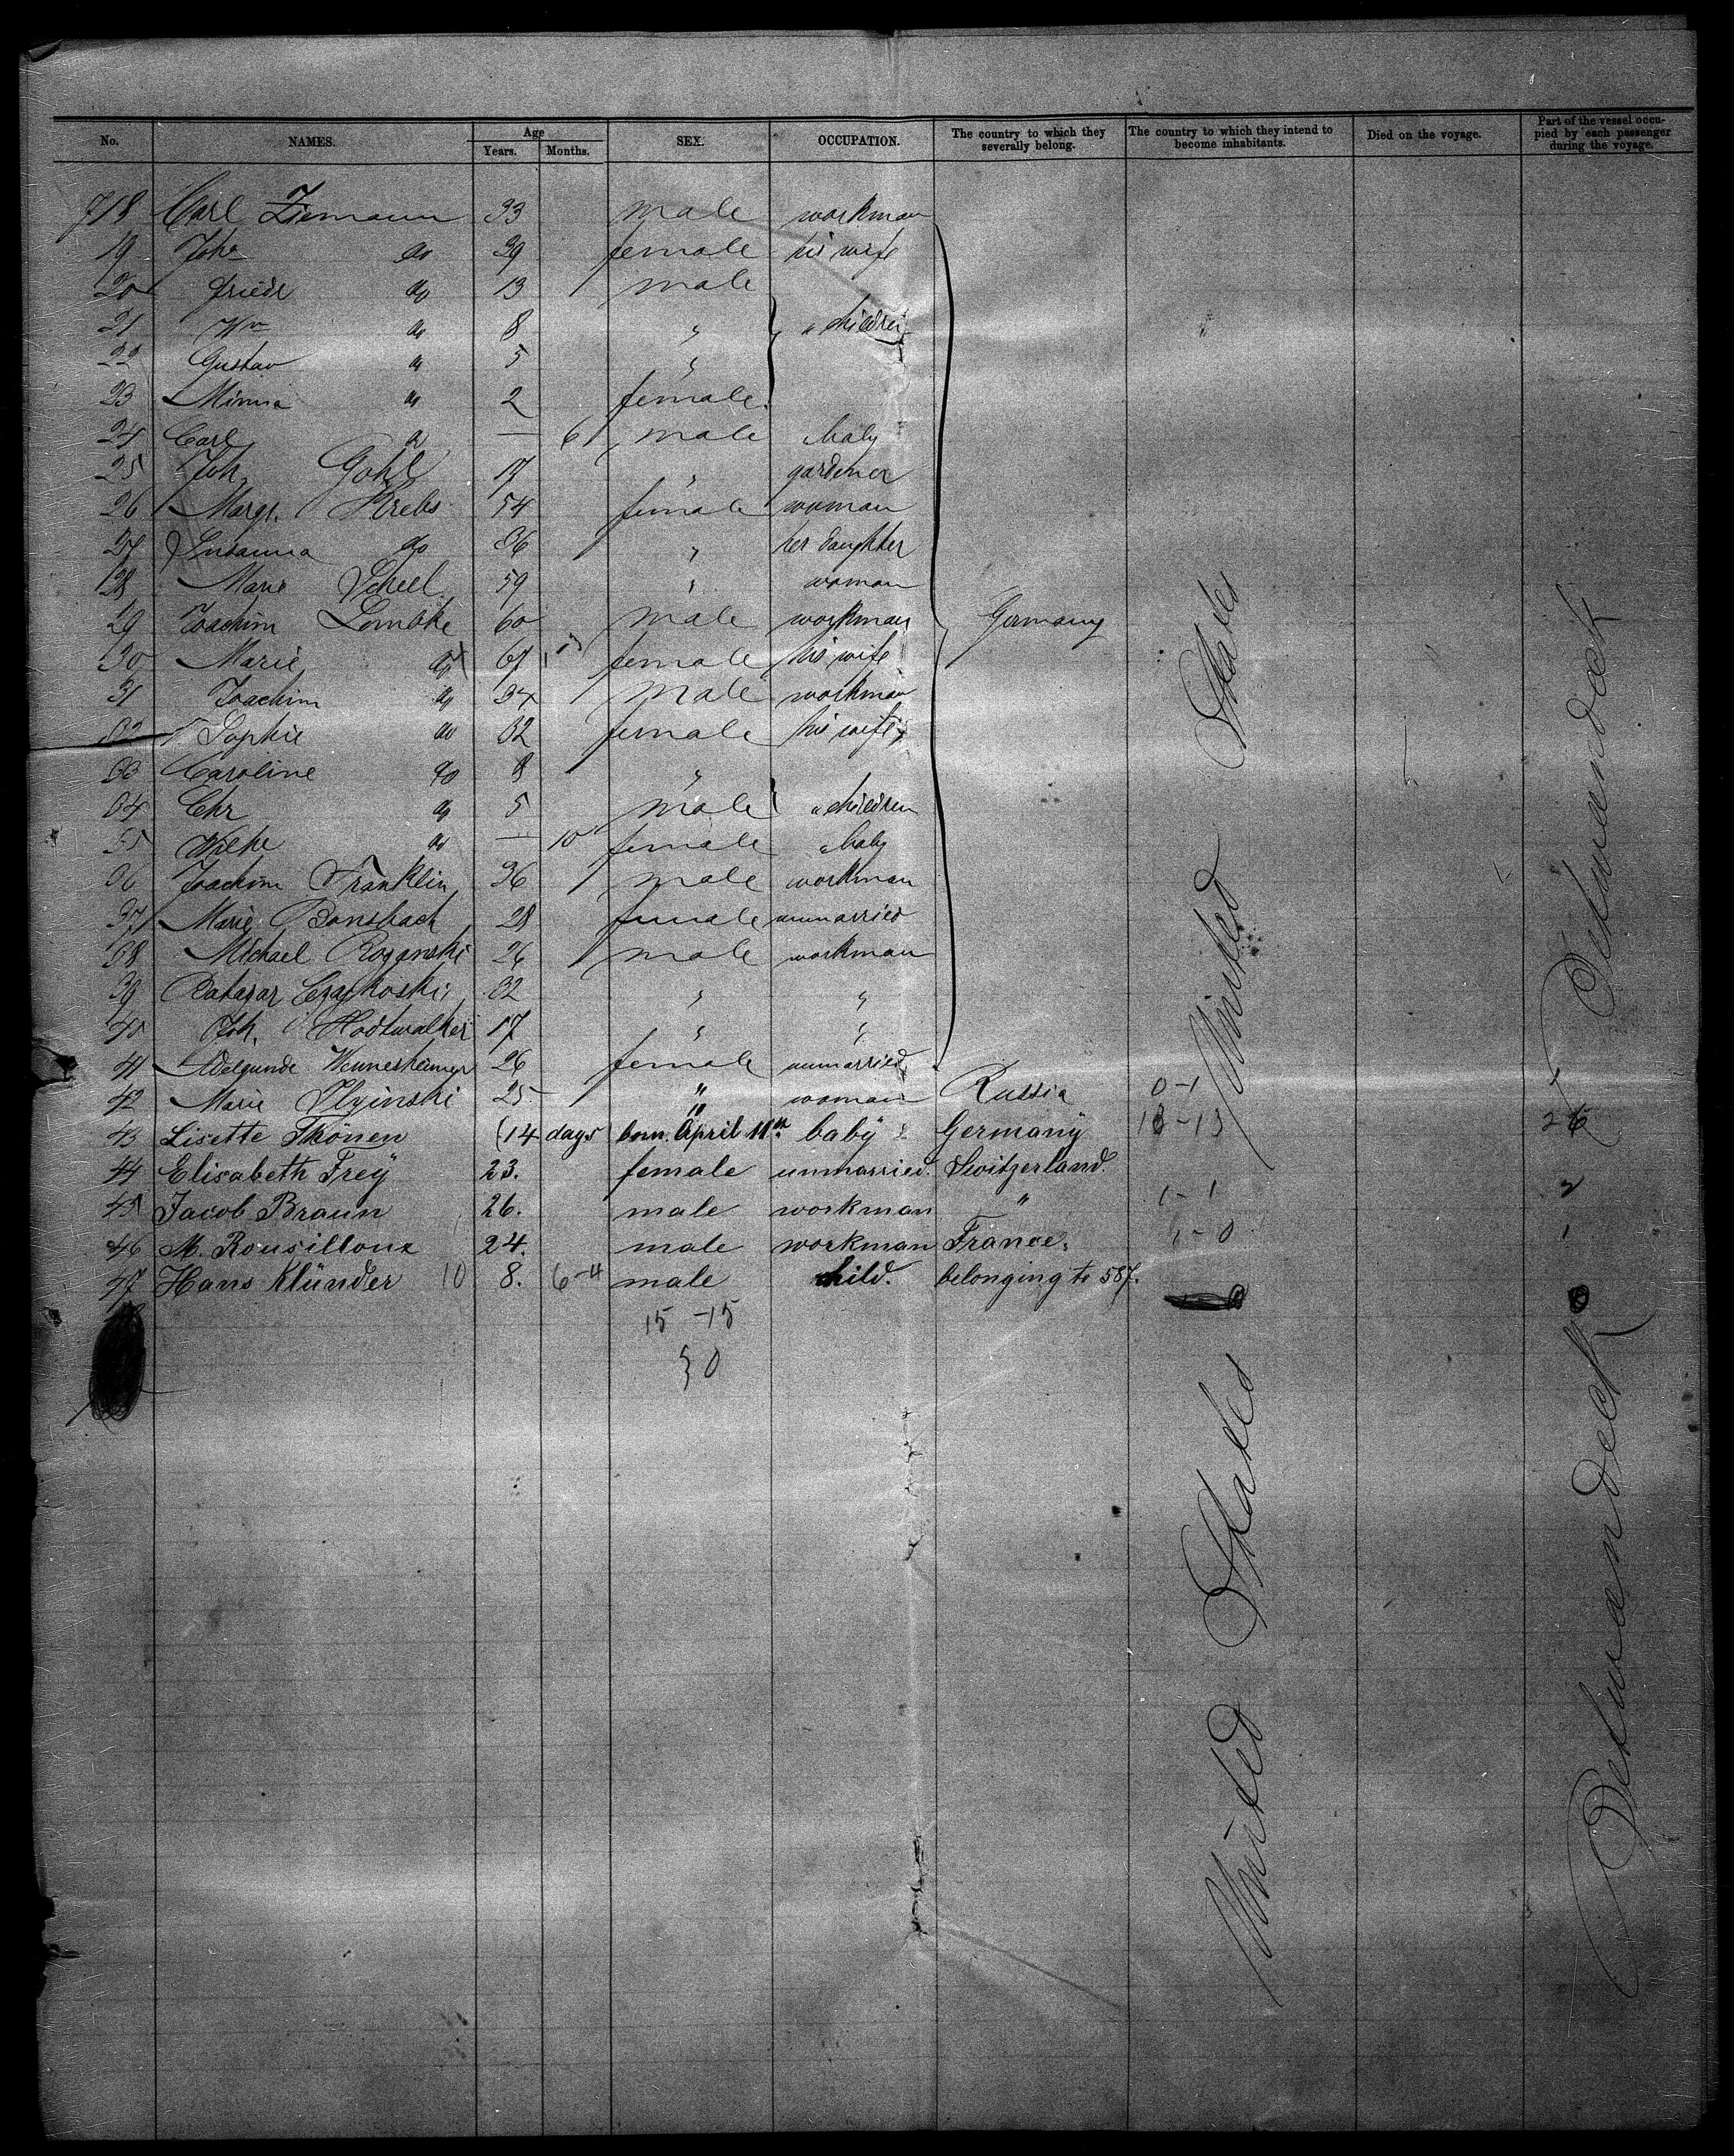 No. NAMES. Age Years. Months. SEX. OCCUPATION. The country to which they severally belong. The country to which they intend to become inhabitants. Died on the voyage. Part of the vessel occupied by each passenger during the voyage.
718 Carl Ziemann 33 male workman
19 Joha do 39 female his wife
20 Friedr do 13 male
21 Wm do 8 " " children
22 Gustav do 5 "
23 Minna do 2 female
24 Carl do — 6 male " baby
25 Joh. Gohl 17 " gardener
26 Margr. Krebs 54 female woman
27 Susanna do 36 " her daughter
28 Marie Scheel 59 " woman
29 Joachim Lembke 60 male workman Germany
30 Marie do 61 female his wife
31 Joachim do 34 male workman
32 Sophie do 32 female his wife
33 Caroline do 8 "
34 Chr do 5 male " children
35 do — 10 female " baby
36 Joachim Franklin 36 male workman
37 Marie Bansbach 28 female unmarried
38 Michael Roganski 26 male workman
39 32 " "
40 Joh. Hodtwalker 17 " "
41 Adelgunde Wennesheimer 26 female unmarried
42 Marie Ilyinski 25 " woman Russia 0-1
43 Lisette Thönen (14 days born April 11th. baby Germany 13-13 26
44 Elisabeth Frey 23. female unmarried. Switzerland.
45 Jacob Braun 26. male workman " 1-1 2
46 M. Rousilloux 24. male workman France. 1-0 1
47 Hans Klünder 10 8. 6-4 male child. belonging to 587.
15-15
30
United States
United States
Betweendeck
Betweendeck